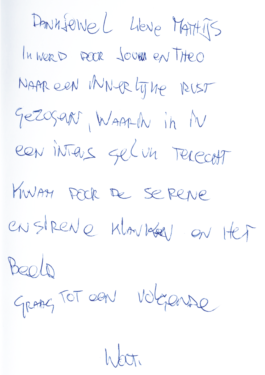 Dankjewel lieve Mathijs
Ik werd door jou en Theo
naar een innerlijke rust
gezogen, waarin ik in
een intens geluk terecht
kwam door de serene
en sirene klanken en het
beeld
Graag tot een volgende